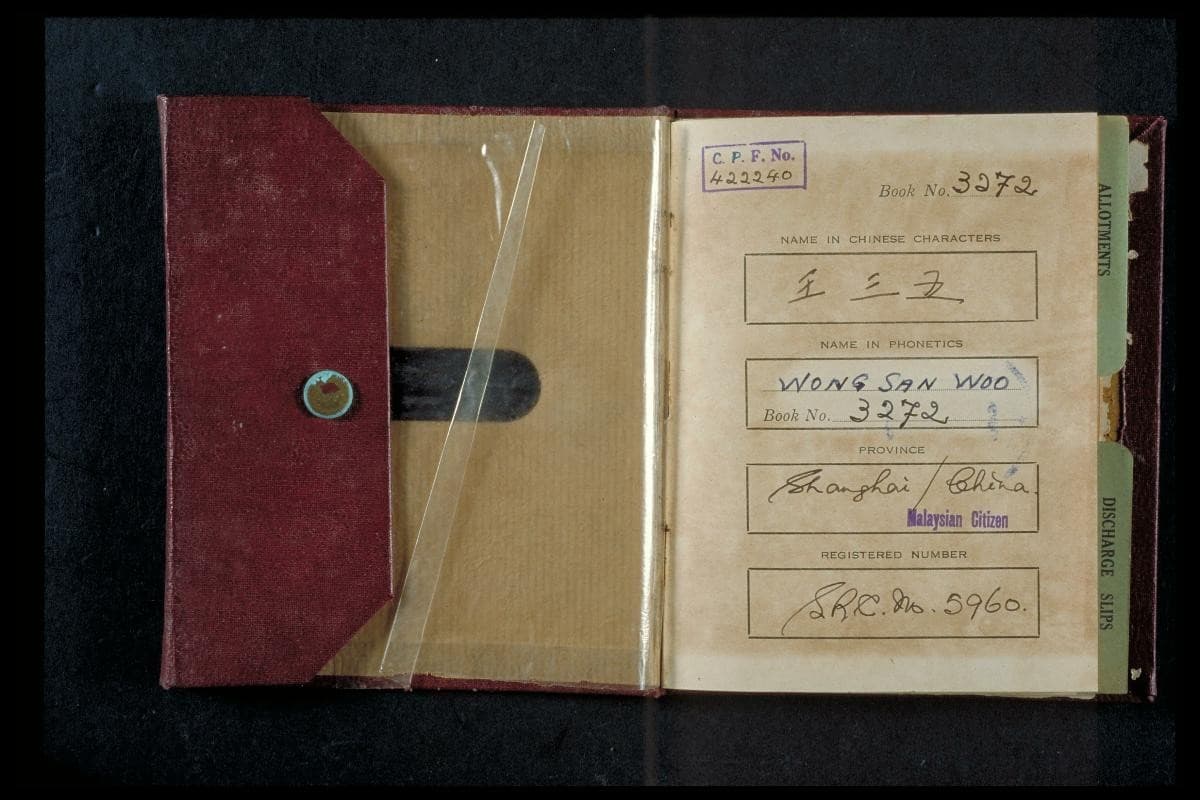 C. P. F. No.
422240
Book No. 3272
NAME IN CHINESE CHARACTERS
王三五
NAME IN PHONETICS
WONG SAN WOO
Book No. 3272
PROVINCE
Shanghai / China.
Malaysian Citizen
REGISTERED NUMBER
SRC. No. 5960.
ALLOTMENTS
DISCHARGE SLIPS